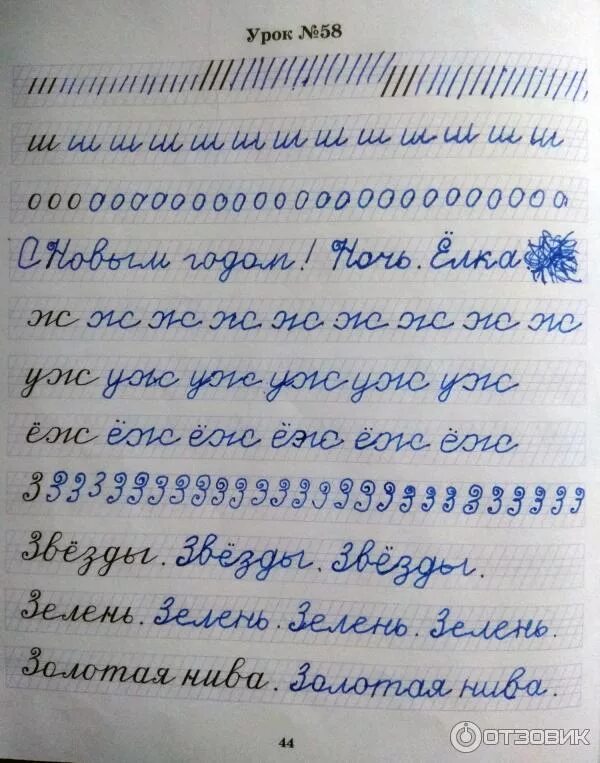 Урок №58
ш ш ш ш ш ш ш ш ш ш ш ш ш
о о о о о о о о о о о о о о о о о о о о о о о о о о
С Новым годом! Ночь. Ёлка
ж ж ж ж ж ж ж ж ж
уж уж уж уж уж уж
ёж ёж ёж ёж ёж ёж
З З З З З З З З З З З З З З З З З З З З З З З З З З З
Звёзды. Звёзды. Звёзды.
Зелень. Зелень. Зелень. Зелень.
Золотая нива. Золотая нива.
44
ОТЗОВИК